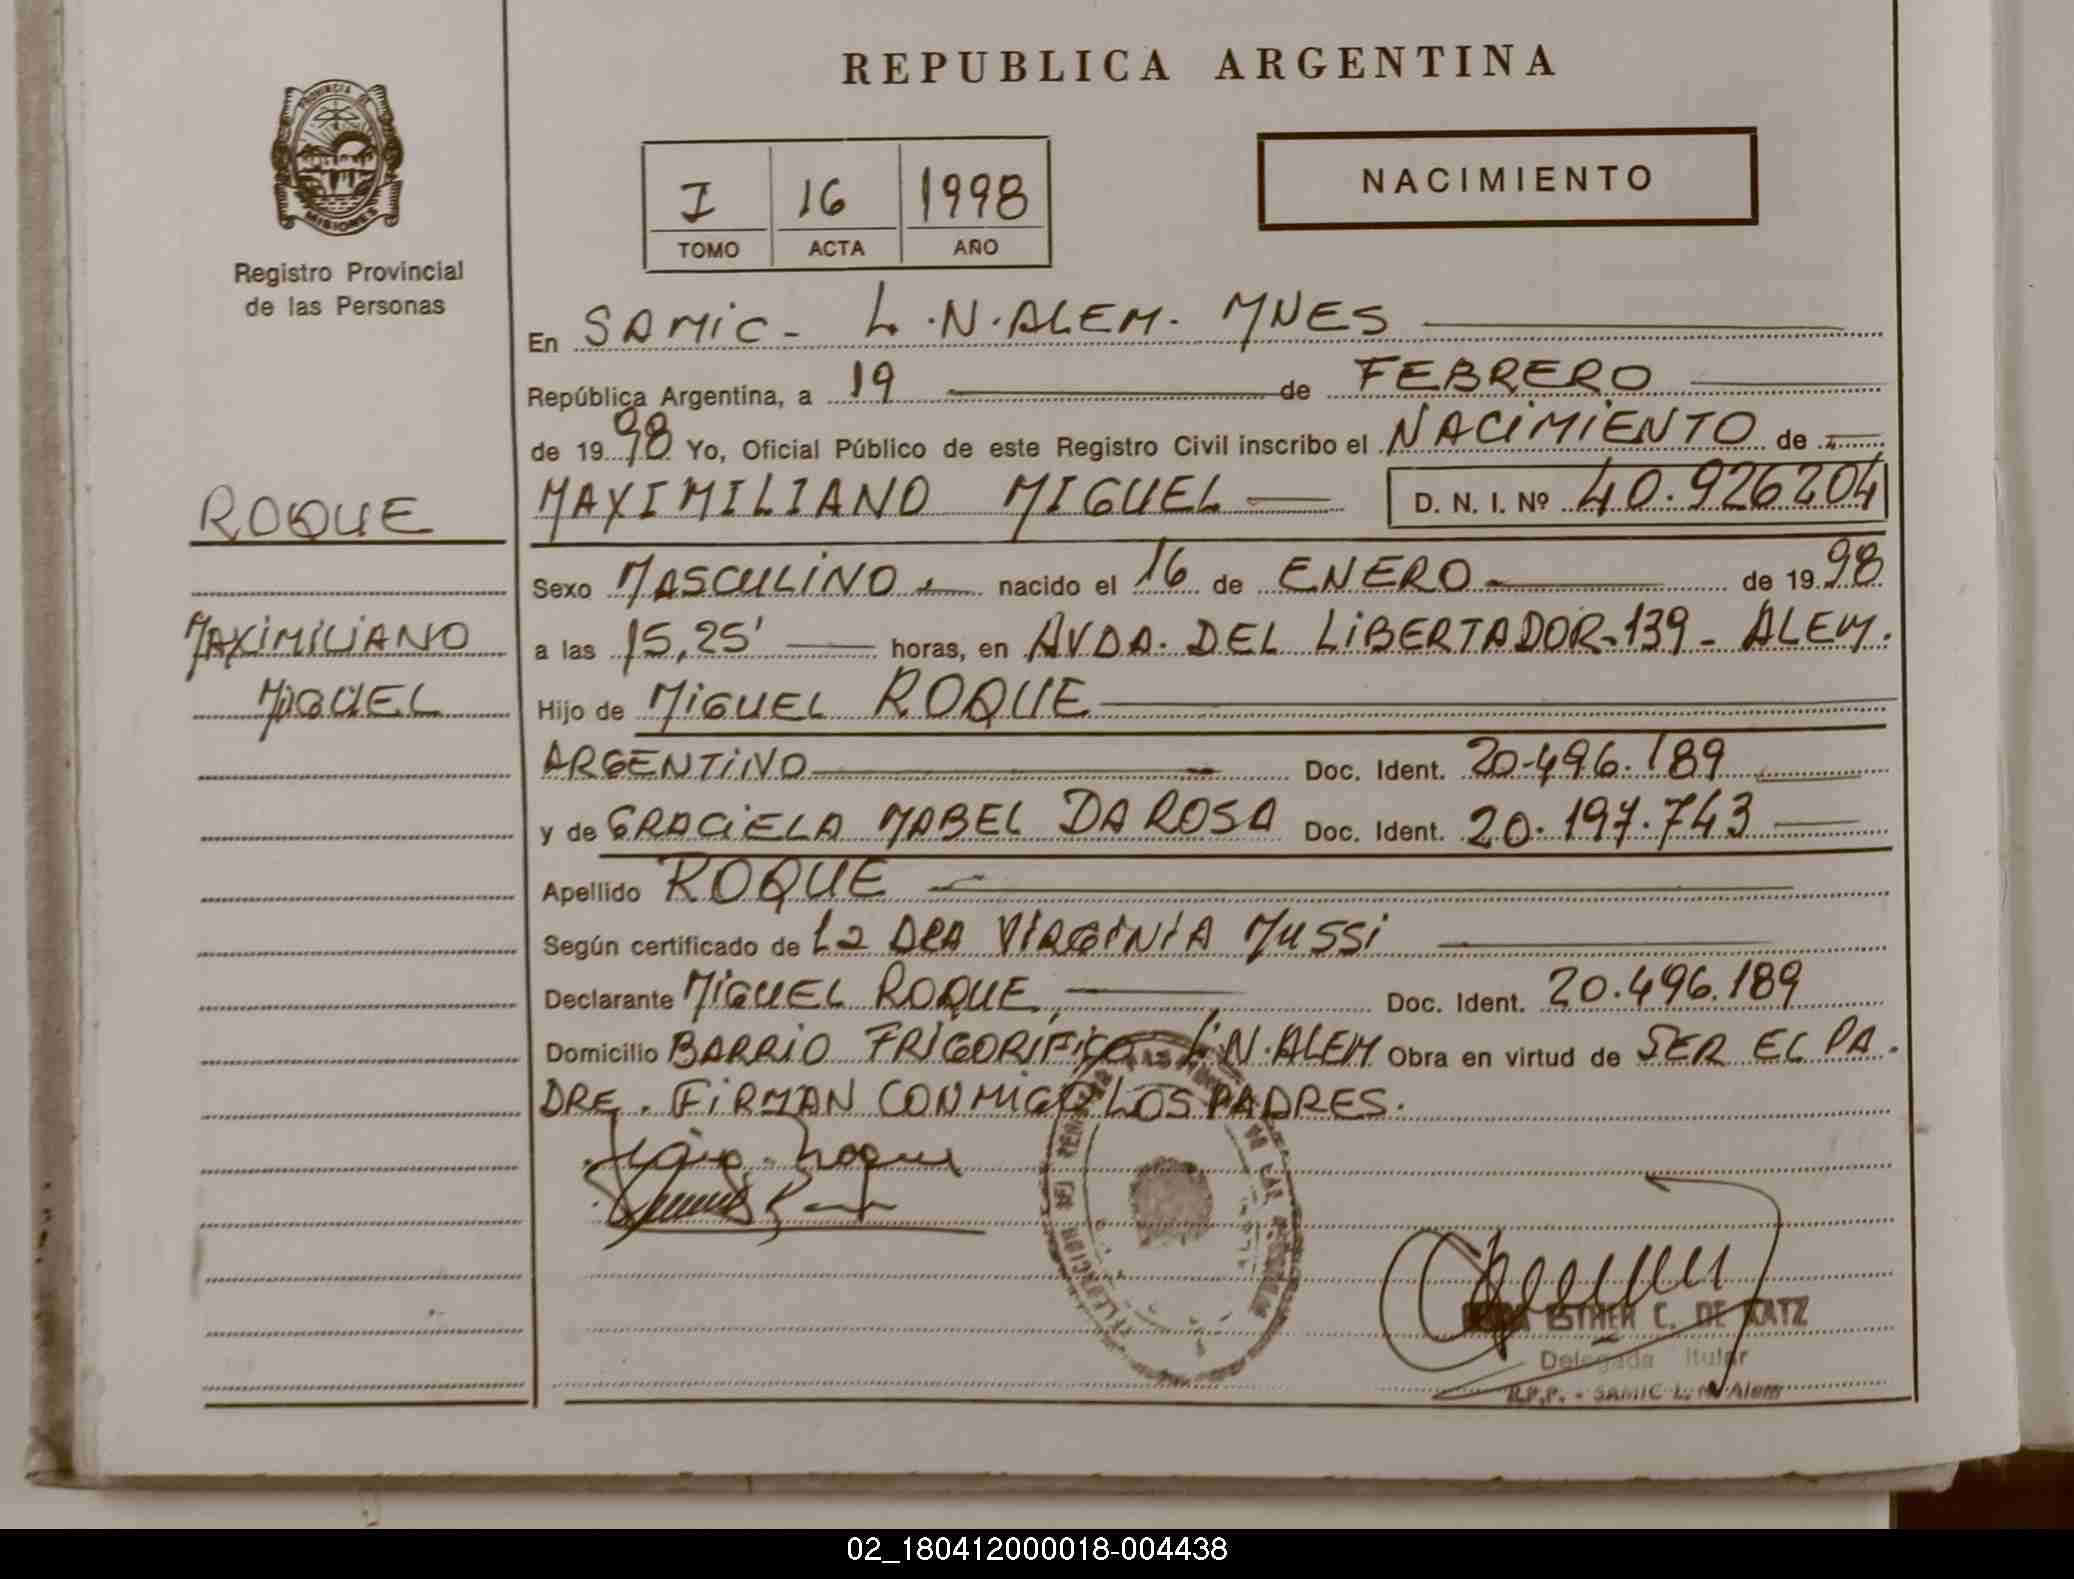 REPUBLICA ARGENTINA
PROVINCIA DE
MISIONES
Registro Provincial
de las Personas
I 16 1998
TOMO ACTA AÑO
NACIMIENTO
En SAMIC - L.N.ALEM. MNES
República Argentina, a 19 de FEBRERO
de 1998 Yo, Oficial Público de este Registro Civil inscribo el NACIMIENTO de
ROQUE
MAXIMILIANO MIGUEL D. N. I. Nº 40.926204
Sexo MASCULINO nacido el 16 de ENERO de 1998
MAXIMILIANO
a las 15,25' horas, en AVDA. DEL LIBERTADOR-139- ALEM.
MIGUEL
Hijo de MIGUEL ROQUE
ARGENTINO Doc. Ident. 20-496.189
y de GRACIELA MABEL DA ROSA Doc. Ident. 20.197.743
Apellido ROQUE
Según certificado de La DRA VIRGINIA MUSSI
Declarante MIGUEL ROQUE, Doc. Ident. 20.496.189
Domicilio BARRIO FRIGORIFICO L.N.ALEM Obra en virtud de SER EL PA.
DRE. FIRMAN CONMIGO LOS PADRES.
ESTHER C. DE KATZ
Delegada Titular
R.P.P. - SAMIC L. N. Alem
02_180412000018-004438